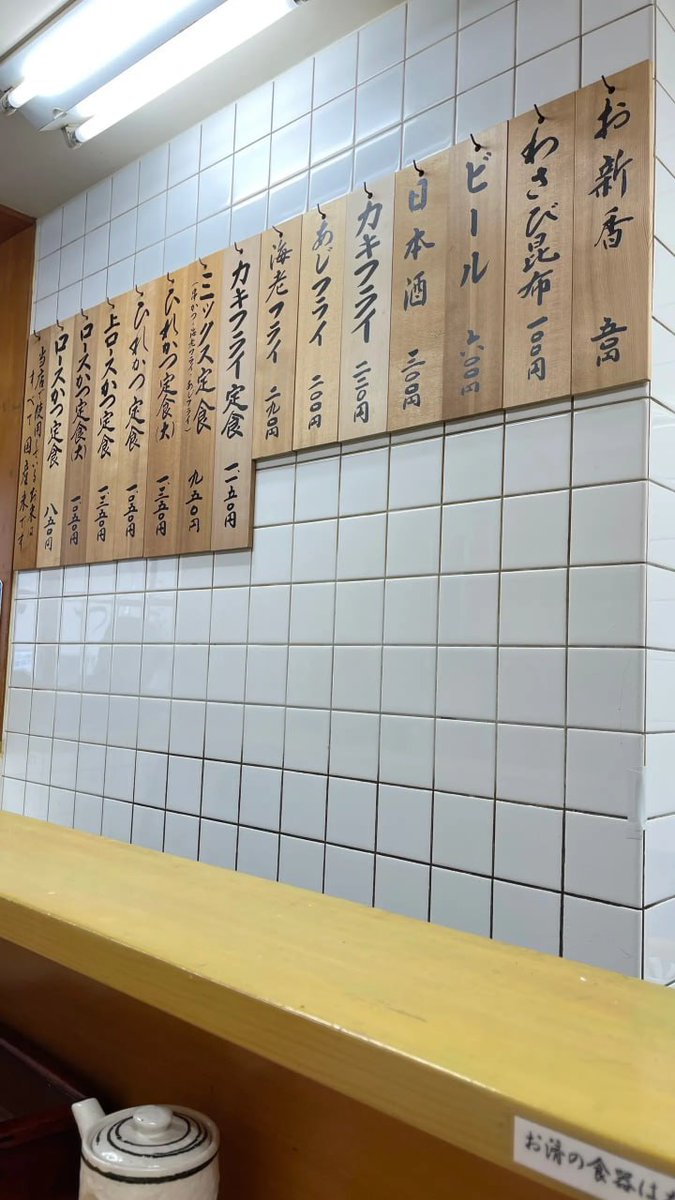 お新香 五〇円
わさび昆布 一〇〇円
ビール 六〇〇円
日本酒 三〇〇円
カキフライ 二三〇円
あじフライ 二〇〇円
海老フライ 二九〇円
カキフライ定食 一、一五〇円
ミックス定食 九五〇円
(串かつ・海老フライ・あじフライ)
ひれかつ定食(大) 一、三五〇円
ひれかつ定食 一、〇五〇円
上ロースかつ定食 一、三五〇円
ロースかつ定食(大) 一、〇五〇円
ロースかつ定食 八五〇円
当店で使用しているお米は
すべて国産米です
お済の食器は